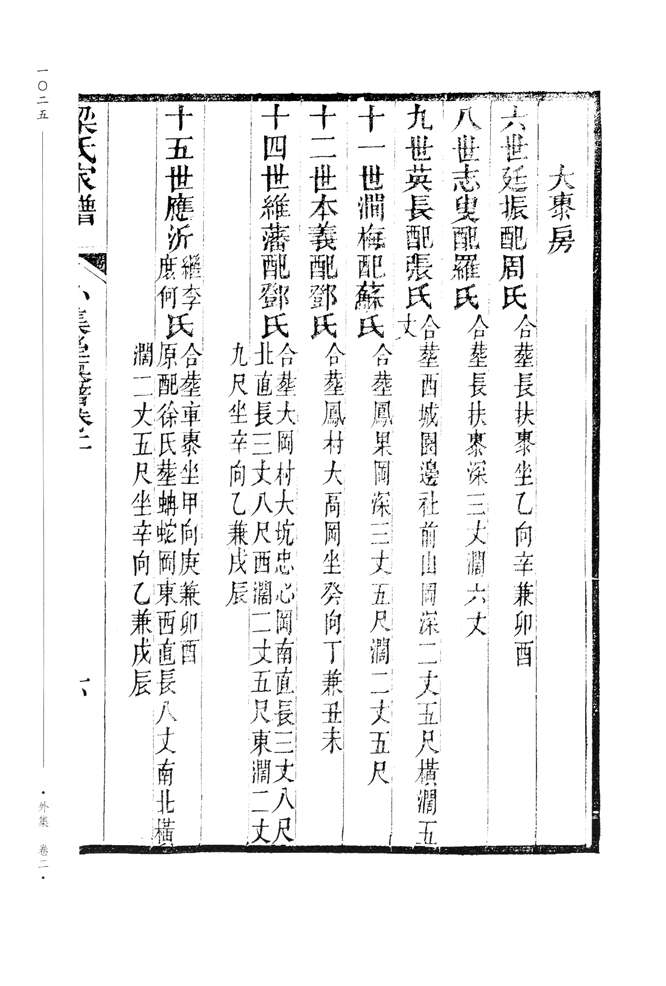 大房
六世廷振配周氏 合塟長扶坐乙向辛兼卯酉
八世志叟配羅氏 合塟長扶深三丈濶六丈
九世英長配張氏 合塟西城園邊社前山岡深二丈五尺橫濶五
丈
十一世澗梅配蘇氏 合塟鳳果岡深三丈五尺濶二丈五尺
十二世本義配鄧氏 合塟鳳村大高岡坐癸向丁兼丑未
十四世維藩配鄧氏 合塟大岡村大坑忠心岡南直長三丈八尺
北直長三丈八尺西濶二丈五尺東濶二丈
九尺坐辛向乙兼戌辰
十五世應沂 繼李
庶何 氏 合塟車坐甲向庚兼卯酉
原配徐氏塟蚺蛇岡東西直長八丈南北橫
濶二丈五尺坐辛向乙兼戌辰
梁氏家譜 外集卷二 六
一〇二五
•外集 卷二•